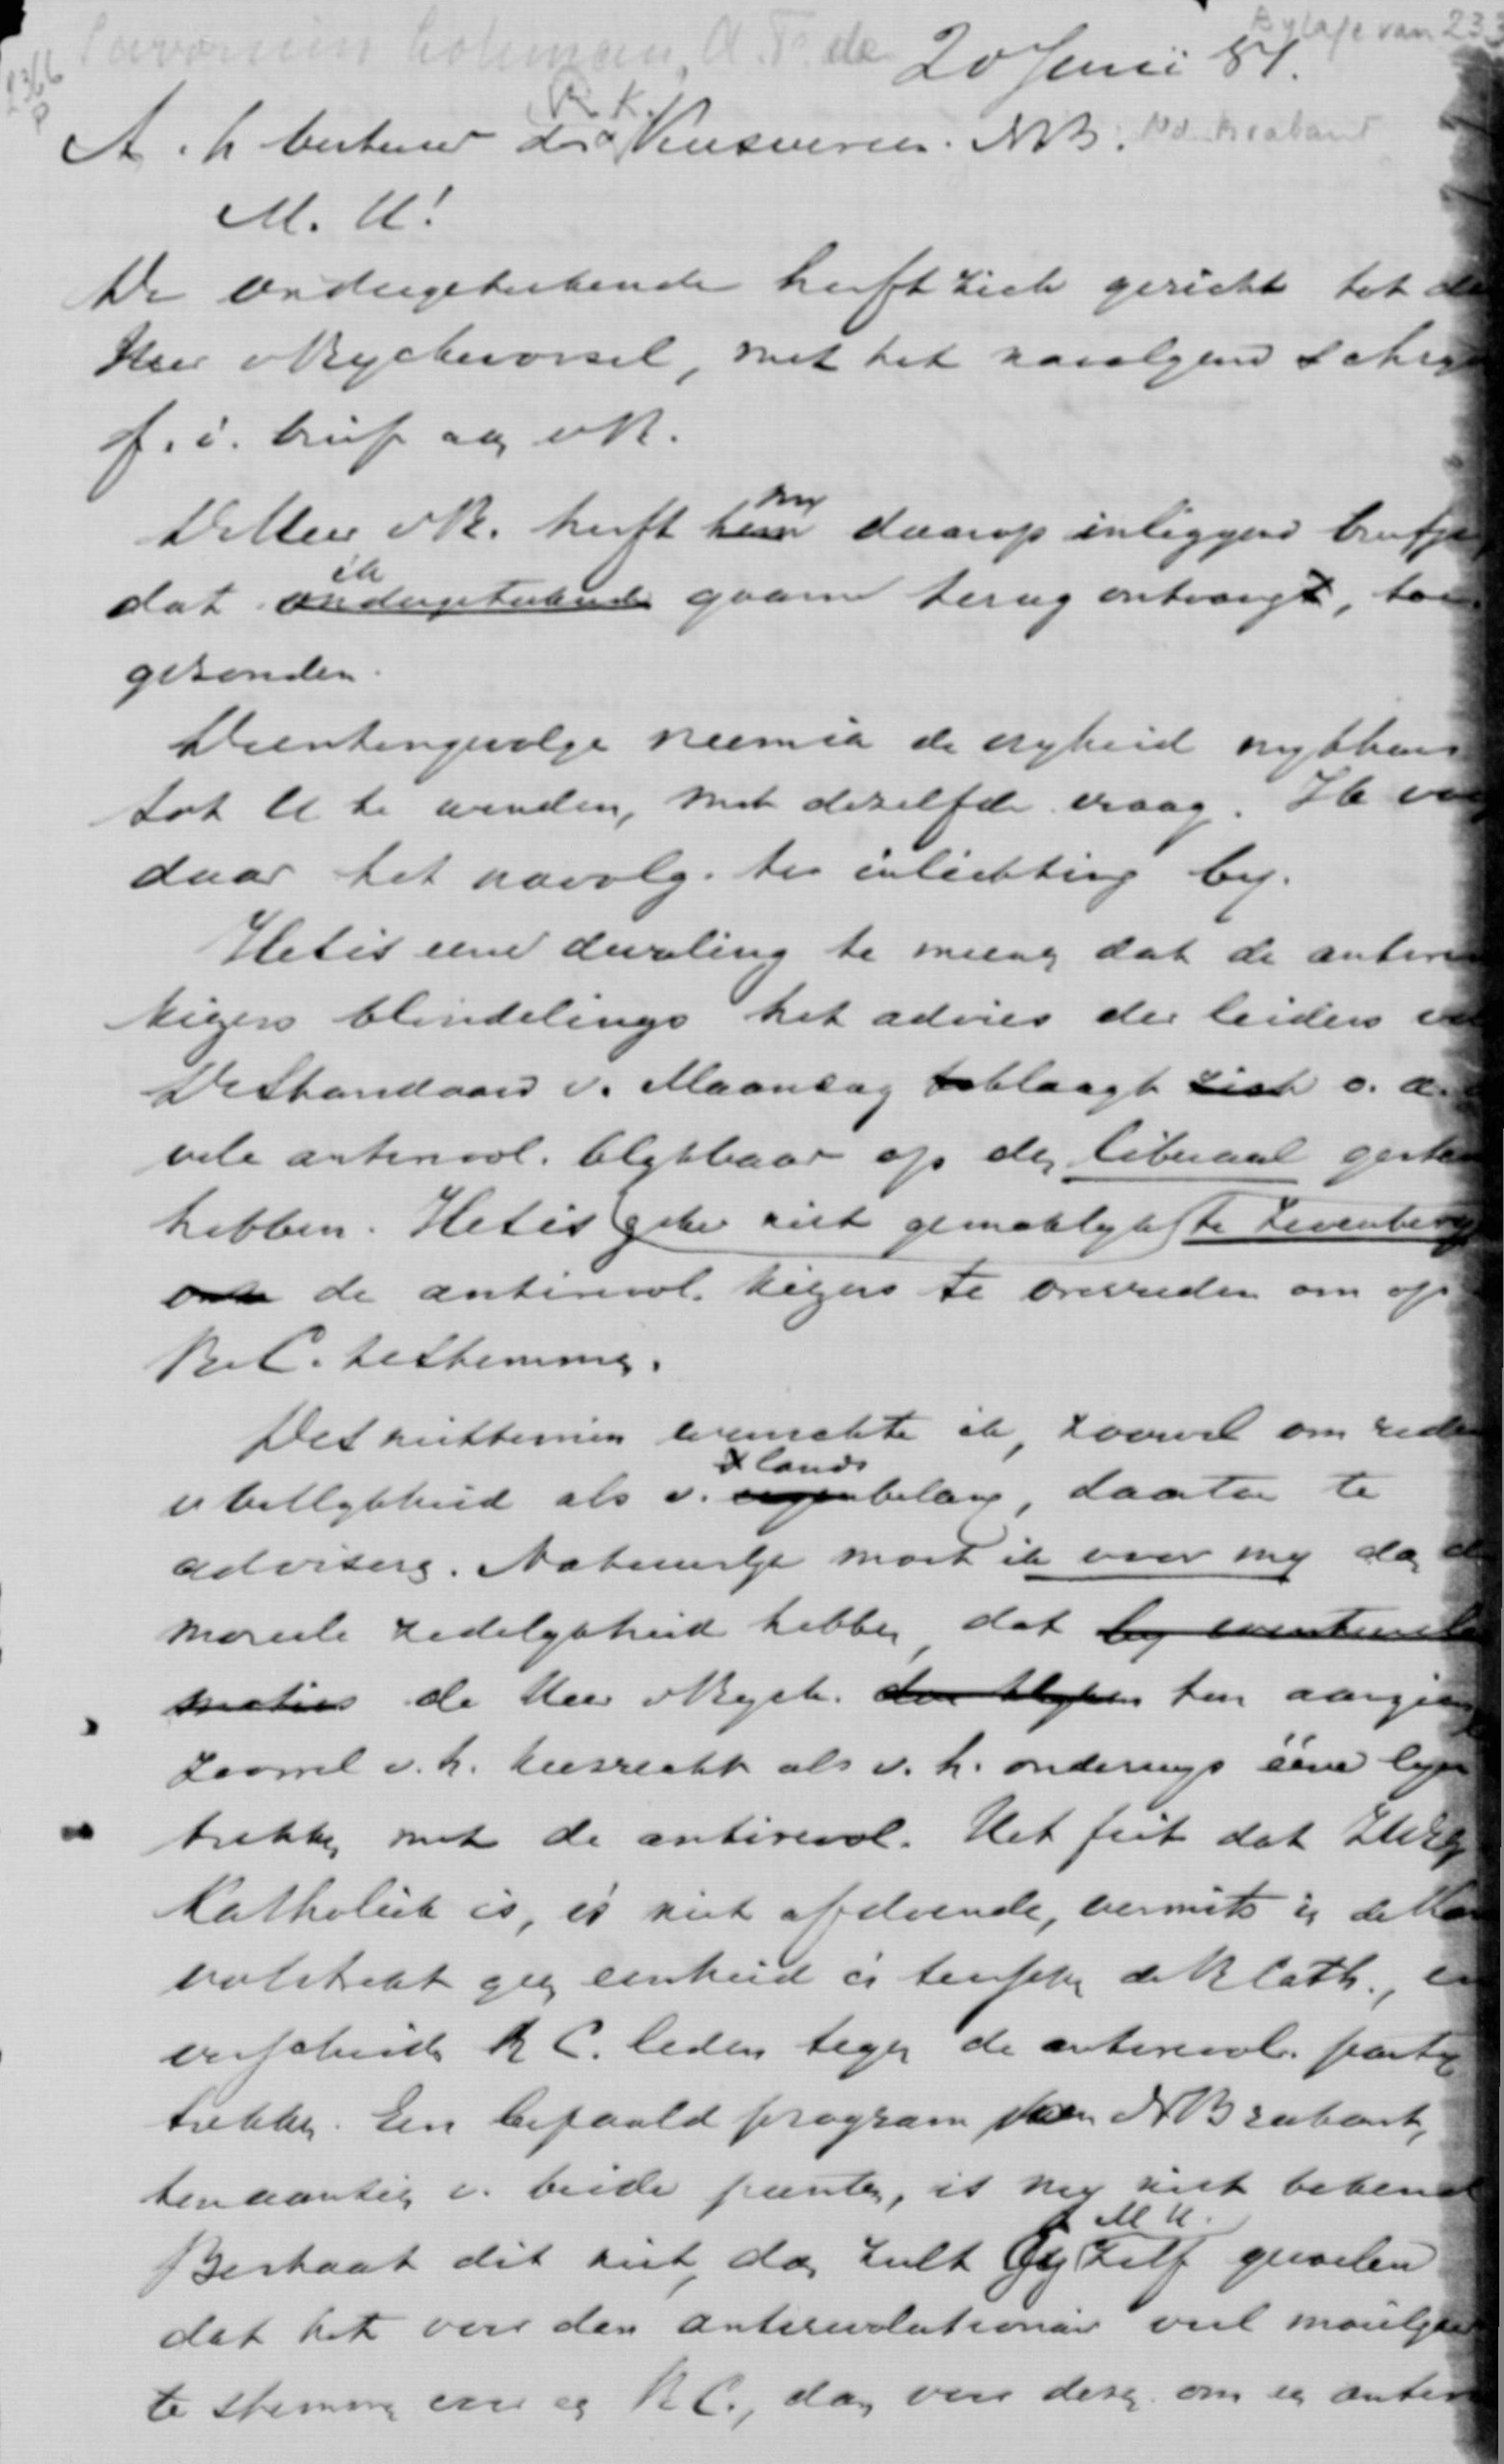 Savornin Lohman, A. F. de
Bylage van 233
20 Juni 81.
A. h bestuur der R. K. Kiesvereen. NB. Nd. Brabant
M. H!
De ondergeteekende heeft zich gericht tot de
Heer v Ryckevorsel, met het navolgend schry
f. i. brief aan v R.
De Heer v R. heeft hem my daarop inliggend briefje
dat ondergeteekende ik gaarne terug ontvangt, toe
gezonden.
Dientengevolge neem ik de vryheid my thans
tot U te wenden, met dezelfde vraag. Ik voeg
daar het navolg. ter inlichting by.
Het is eene dwaling te meenen dat de antirev
kiezers blindelings het advies der leiders vol
De Standaard v. Maandag beklaagt zich o. a.
vele antirevol. blykbaar op den liberaal gestem
hebben. Het is zeker niet gemakkelyk te Zevenberg
om de antirevol. kiezers te overreden om op
R. C. te stemmen.
Desniettemin wenschte ik, zoowel om rede
v billykheid als v. eigen 's lands belang, daartoe te
adviseren. Natuurlyk moet ik voor my dan de
moreele zedelykheid hebben, dat by eventueele
moties de Heer v Ryck. den aangaan
zoowel v. h. kiesrecht als v. h. onderwys ééne lyn
trekken met de antirevol. Het feit dat ZHEG
Katholiek is, is niet afdoende, vermits in de Kamer
volstrekt geen eenheid is tusschen de R Cath., en
verscheide R C. leden tegen de antirevol. party
trekken. Een bepaald program van N Brabant,
ten aanzien v. beide punten, is my niet bekend
Bestaat dit niet, dan zult Gy M H. zelf gevoelen
dat het voor den antirevolutionair veel moeilyker
te stemmen voor een R C., dan voor dezen om een antirev